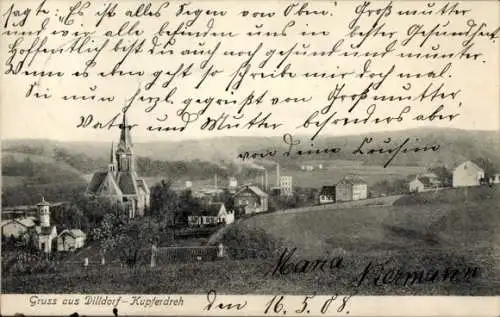 sagte: "Es ist alles Segen von Oben!" Großmutter
und wir alle befinden uns in bester Gesundheit
Hoffentlich bist du auch noch gesund und munter.
Wenn es dem geht so schreibe mir doch mal.
Sei nun herzl. gegrüßt von Großmutter,
Vater und Mutter, besonders aber
von deine Cousine
Maria Hermann
Gruss aus Dilldorf-Kupferdreh den 16.5.08.